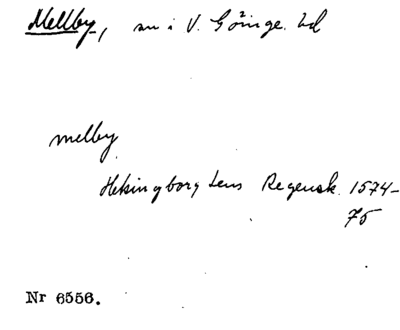 Mellby, sn i V. Göinge. hd
melby
Helsingborg Lens Regensk. 1574-
75
Nr 6556.